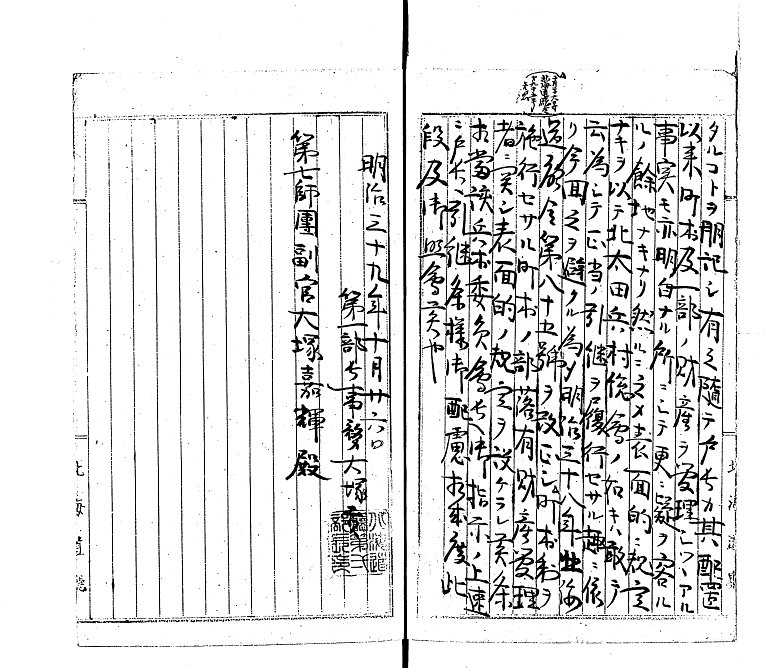 タルコトヲ明記シ有之随テ戸長カ其配置
以来町村及一部ノ財産ヲ受理シツヽアル
事実モ亦明白ナル所ニシテ更ニ疑ヲ容ル
ルノ餘地ナキナリ然ルニ之カ表面的ニ規定
ナキヲ以テ北太田兵村ノ如キハ敢テ
云為シテ正当ノ引継ヲ履行セサル趣ニ依
リ今回之ヲ避クル為メ明治三十八年北海
道廳令第八十五號ヲ改正シ町村制ヲ
施行セサル町村ノ部落有財産受理
者ニ関シ表面的ノ規定ヲ設ケラレ候条
可当該兵村委員会長ヘ御指示ノ上速
ニ戸長ヘ引継候様御配慮相成度此
段及御照会候也
明治三十九年十月廿六日
第一部長事務大塚
第七師團副官大塚嘉輝殿
北海道廳
北海道廳